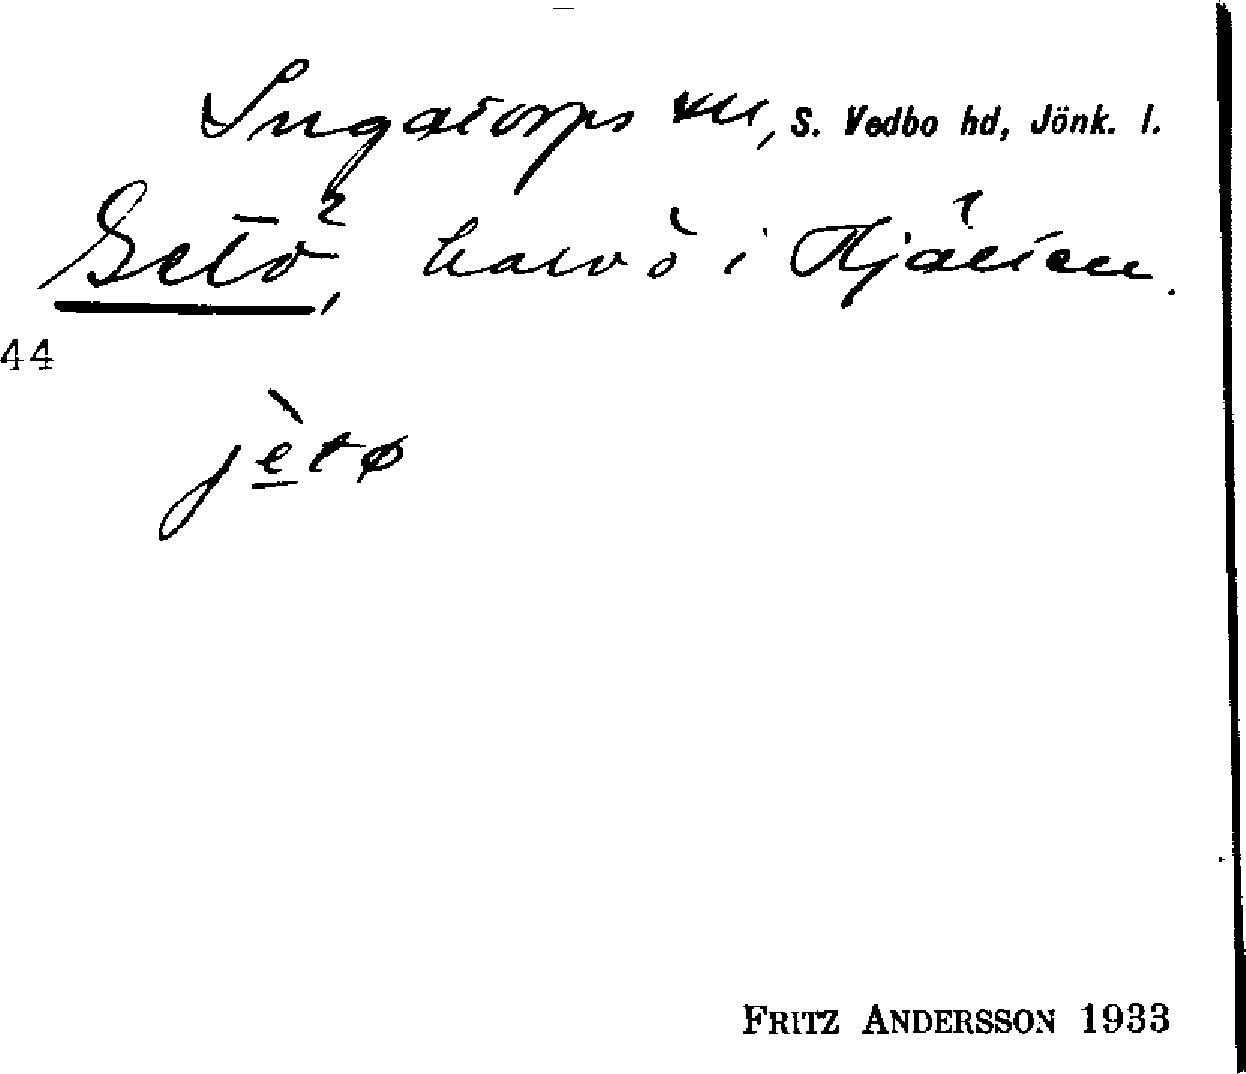 Ingatorps sn, S. Vedbo hd, Jönk. l.
Getö, halvö i Hjälten.
44
jètø
FRITZ ANDERSSON 1933